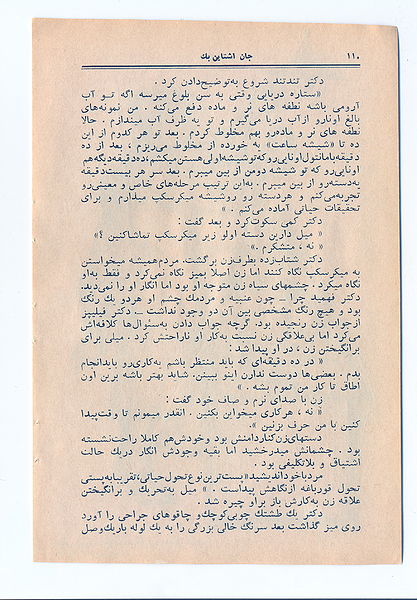 ۱۱۰
جان اشتاین بك
دکتر تندتند شروع به‌توضیح‌دادن کرد .
«ستاره دریایی وقتی به سن بلوغ میرسه اگه تو آب
آرومی باشه نطفه های نر و ماده دفع می‌کنه . من نمونه‌های
بالغ اونارو ازآب دریا می‌گیرم و تو یه ظرف آب میندازم . حالا
نطفه های نر و ماده‌رو بهم مخلوط کردم . بعد تو هر کدوم از این
ده تا «شیشه ساعت» یه خورده از مخلوط می‌ریزم ، بعد از ده
دقیقه‌بامانتول‌اونایی‌روکه‌توشیشه‌اولی‌هستن‌میکشم،ده‌دقیقه‌دیگه‌هم
اونایی‌رو که تو شیشه دومن از بین میبرم . بعد سر هر بیست‌دقیقه
یه‌دسته‌رو از بین میبرم . به‌این ترتیب مرحله‌های خاص و معینی‌رو
تجربه‌می‌کنم و هردسته رو روشیشه میکرسکپ میذارم و برای
تحقیقات حیاتی آماده می‌کنم . »
دکتر کمی سکوت‌کرد و بعد گفت :
« میل دارین دسته اولو زیر میکرسکب تماشاکنین ؟»
« نه ، متشکرم .»
دکتر شتاب‌زده بطرف‌زن برگشت. مردم‌همیشه میخواستن
به میکرسکپ نگاه کنند اما زن اصلا بمیز نگاه نمی‌کرد و فقط به‌او
نگاه میکرد . چشمهای سیاه زن متوجه او بود اما انگار او را نمی‌دید.
دکتر فهمید چرا – چون عنبیه و مردمك چشم او هردو یك رنگ
بود و هیچ رنگ مشخصی بین آن دو وجود نداشت – دکتر فیلیپز
ازجواب زن رنجیده بود. گرچه جواب دادن به‌سئوال‌ها کلافه‌اش
می‌کرد اما بی‌علاقگی زن نسبت به‌کار او ناراحتش کرد . میلی برای
برانگیختن زن ، در او پیدا شد :
« در ده دقیقه‌ای که باید منتظر باشم یه‌کاری‌رو بایدانجام
بدم . بعضی‌ها دوست ندارن اینو ببینن. شاید بهتر باشه برین اون
اطاق تا کار من تموم بشه . »
زن با صدای نرم و صاف خود گفت :
« نه ، هرکاری میخواین بکنین . انقدر میمونم تا وقت‌پیدا
کنین با من حرف بزنین ».
دستهای‌زن‌کناردامنش بود وخودش‌هم کاملا راحت‌نشسته
بود . چشمانش میدرخشید اما بقیه وجودش انگار دریك حالت
اشتیاق و بلاتکلیفی بود .
مردباخوداندیشید«پست‌ترین‌نوع‌تحول‌حیاتی،تقریبابه‌پستی
تحول قورباغه ازنگاهش پیداست . » میل به‌تحریك و برانگیختن
علاقه زن به‌کارش باز براو چیره شد .
دکتر یك طشتك چوبی‌کوچك‌و چاقوهای جراحی را آورد
روی میز گذاشت بعد سرنگ خالی بزرگی را به یك لوله باریك‌وصل